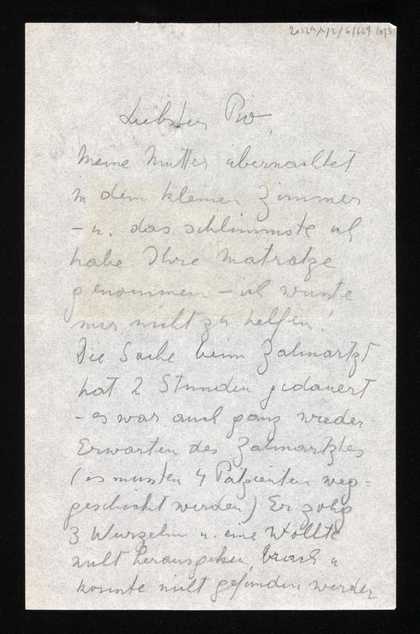 Liebster Pw,
Meine Mutter übernachtet
in dem kleinen Zimmer
– u. das schlimmste ich
habe Ihre Matratze
genommen – ich wusste
mir nicht zu helfen!
Die Sache beim Zahnartzt
hat 2 Stunden gedauert
– es war auch ganz wieder
Erwarten des Zahnartztes
(es mussten 4 Patzienten weg=
geschickt werden) Er zog
3 Wurzeln u. eine wollte
nicht herausgehen, brach u
konnte nicht gefunden werden